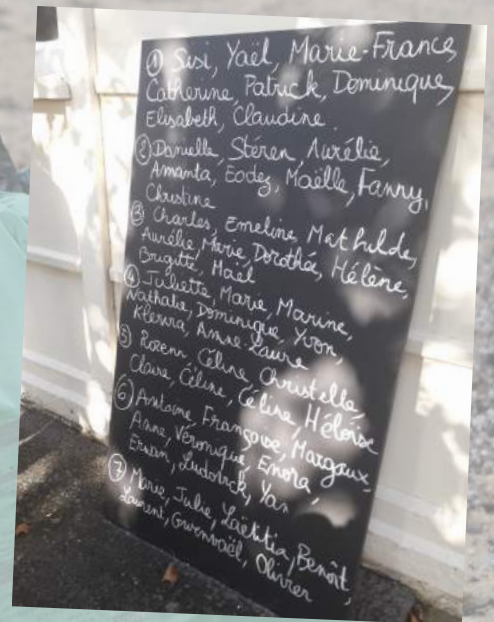 ① Sisi, Yaël, Marie-France,
Catherine, Patrick, Dominique,
Elisabeth, Claudine
② Danielle, Stéren, Aurélie,
Amanta, Eodez, Maëlle, Fanny,
Christine
③ Charles, Emeline, Mathilde,
Aurélie, Marie, Dorothée, Hélène,
Brigitte, Maël
④ Juliette, Marie, Marine,
Nathalie, Dominique, Yvon,
Klervra, Anne-Laure
⑤ Rozenn, Céline, Christelle,
Claire, Céline, Céline, Héloïse
⑥ Antoine, Françoise, Margaux,
Anne, Véronique, Enora,
Erwan, Ludovick, Yan
⑦ Marie, Julie, Laëtitia, Benoît,
Laurent, Gwennaël, Olivier